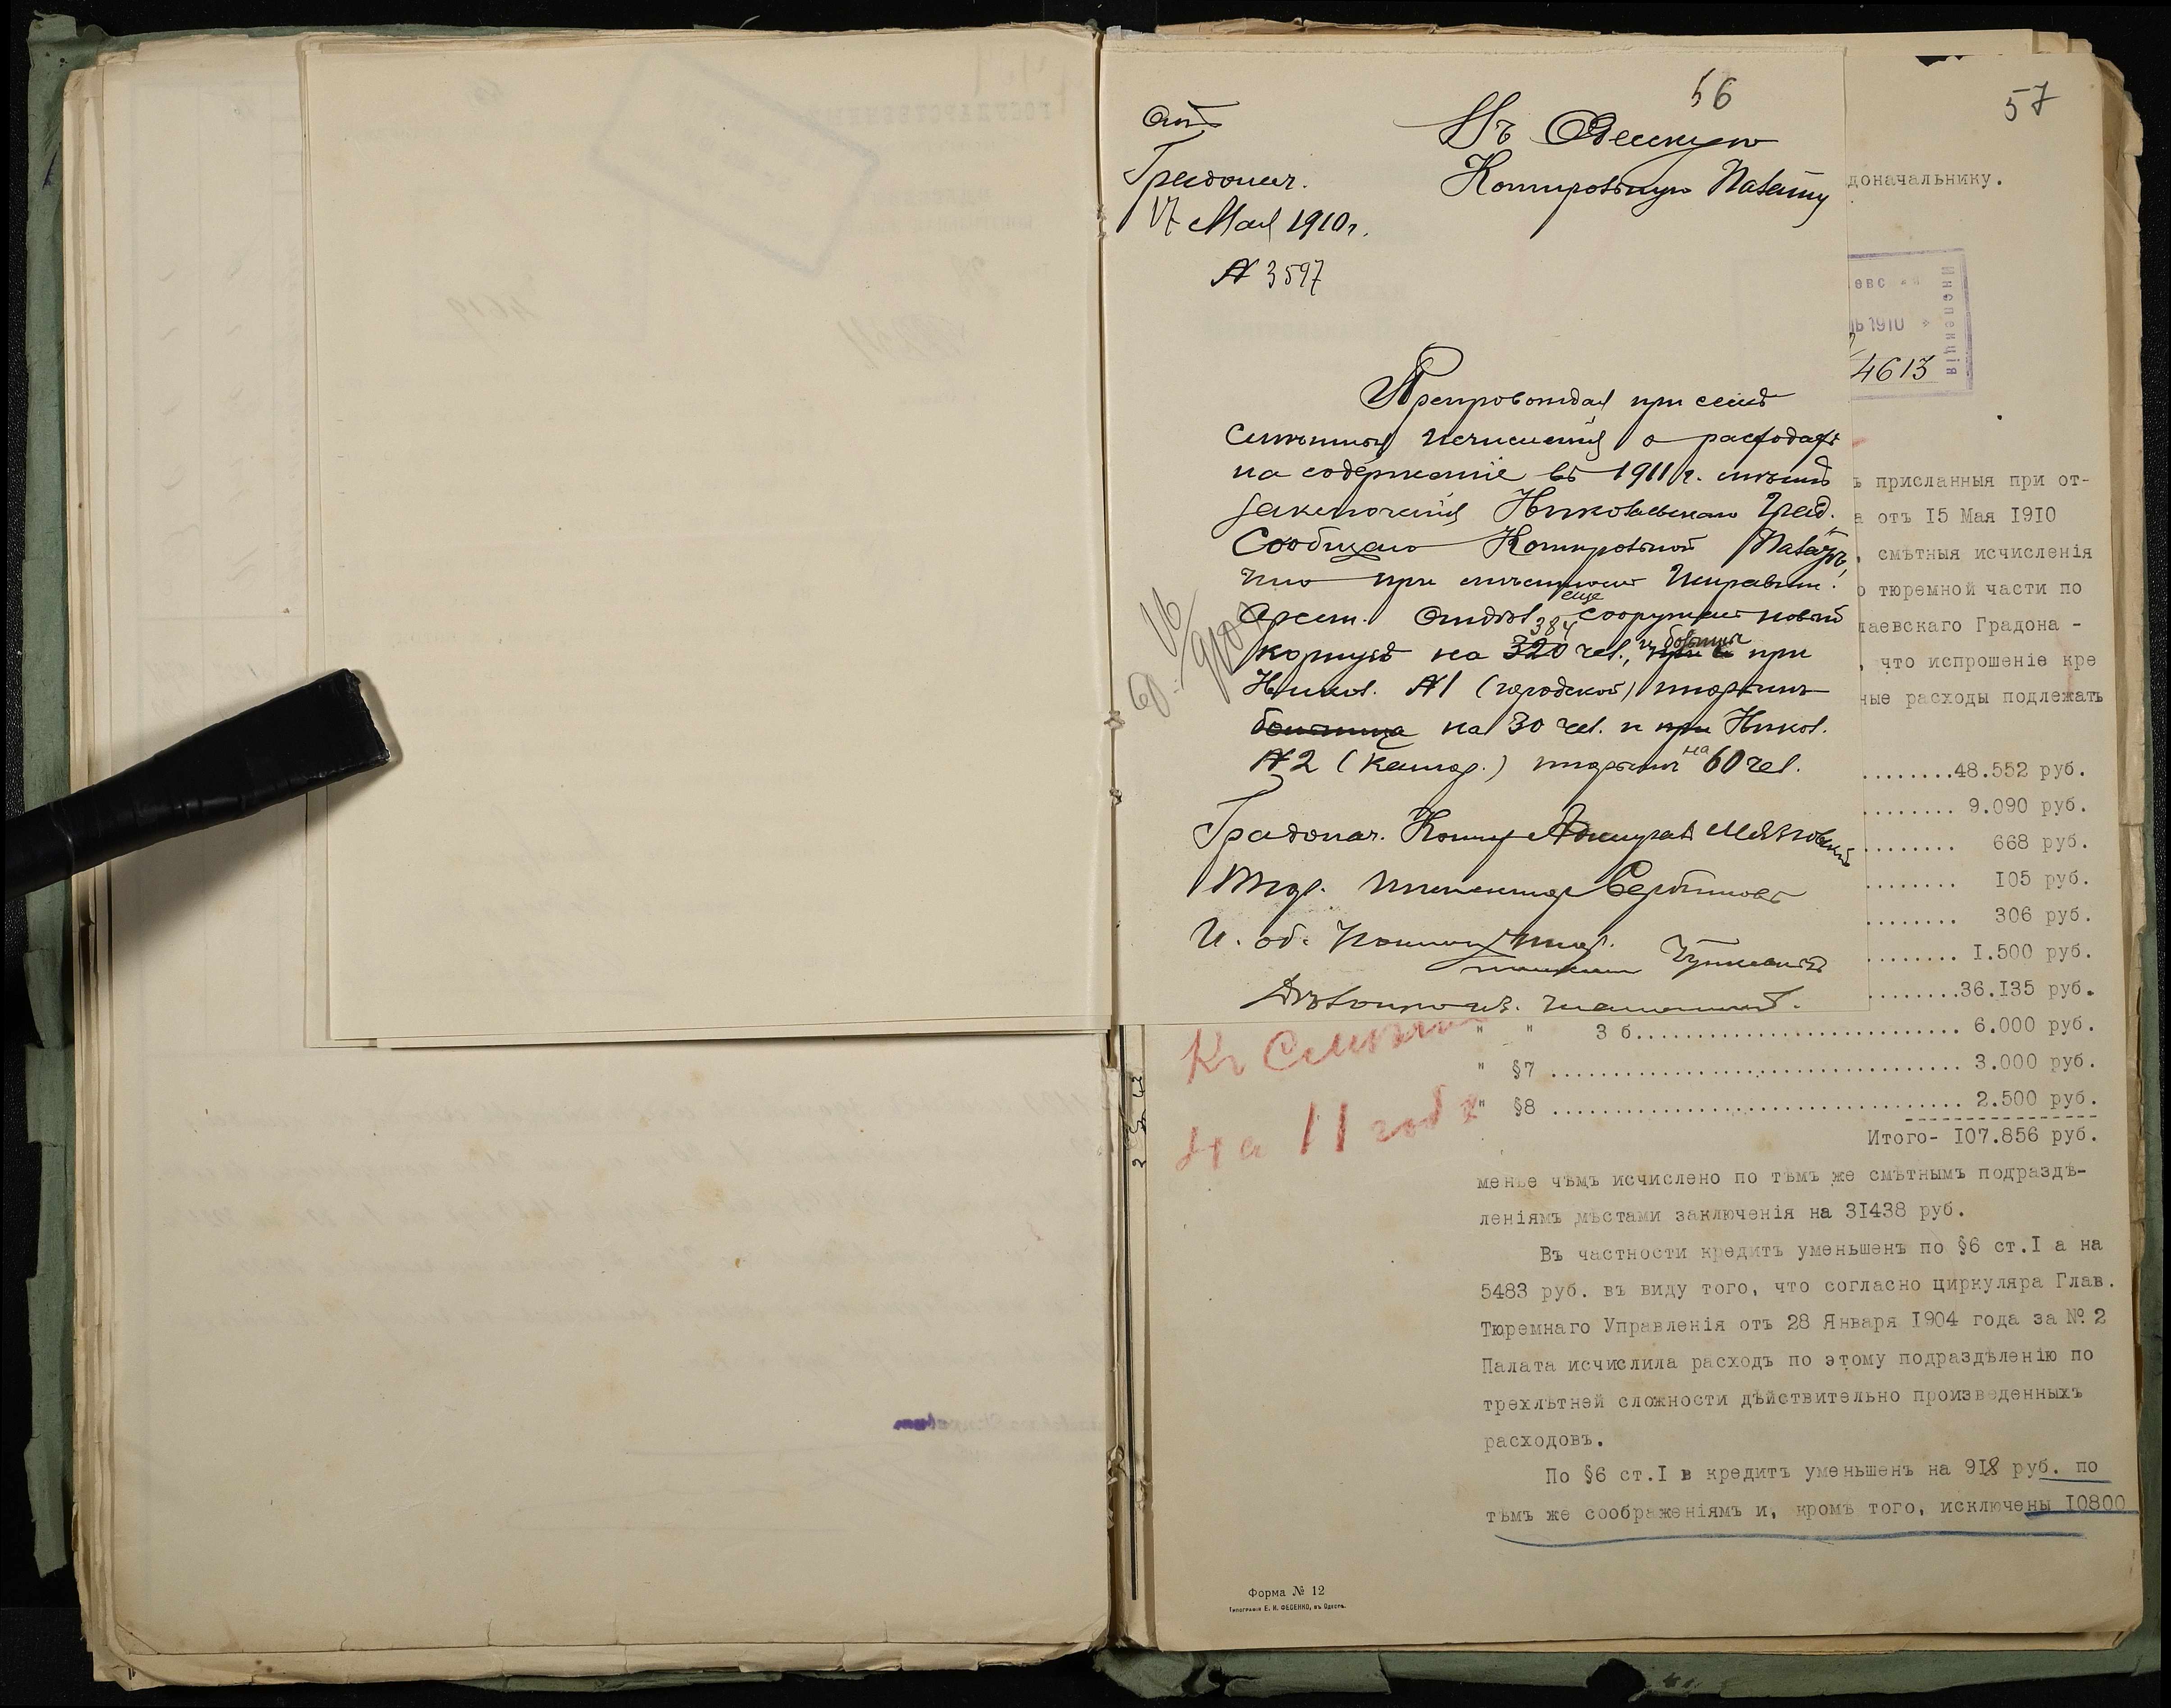 56
Отъ
Градонач.
17 Мая 1910 г.
№ 3597
Въ Одесскую
Контрольную Палату
Препровождая при семъ
смѣтныя исчисленія о расходахъ
на содержаніе въ 1911 г. мѣстъ
заключенія Николаевскаго Град.
Сообщаю Контрольной Палатѣ,
что при мѣстномъ Исправит.
Арест. Отдѣл. еще сооружает новый
корпусъ на 320 384 чел., и больницы при
Никол. №1 (городской) тюрьмѣ
больница на 30 чел. и при Никол.
№2 (каторж.) тюрьмѣ на 60 чел.
Градонач. Контръ Адмиралъ Мязговскій
Тюр. Инспекторъ Сербиновъ
И. об. Помощ. Тюр.
Дѣлопроизв.
57
доначальнику.
Инспекція
ль 1910
4613
ъ присланныя при от-
а отъ I5 Мая I9I0
, смѣтныя исчисленія
о тюремной части по
лаевскаго Градона -
, что испрошеніе кре
ные расходы подлежатъ
........48.552 руб.
........ 9.090 руб.
........ 668 руб.
........ I05 руб.
........ 306 руб.
........ I.500 руб.
........36.I35 руб.
" " 3 б................................. 6.000 руб.
" §7 .................................... 3.000 руб.
" §8 .................................... 2.500 руб.
Итого- I07.856 руб.
Къ Смѣтѣ
на 11 годъ
менѣе чѣмъ исчислено по тѣмъ же смѣтнымъ подраздѣ-
леніямъ мѣстами заключенія на 3I438 руб.
Въ частности кредитъ уменьшенъ по §6 ст.I а на
5483 руб. въ виду того, что согласно циркуляра Глав.
Тюремнаго Управленія отъ 28 Января I904 года за № 2
Палата исчислила расходъ по этому подраздѣленію по
трехлѣтней сложности дѣйствительно произведенныхъ
расходовъ.
По §6 ст.I в кредитъ уменьшенъ на 9I8 руб. по
тѣмъ же соображеніямъ и, кромѣ того, исключены I0800
Форма № 12
Типографія Е. И. ФЕСЕНКО, въ Одессѣ.